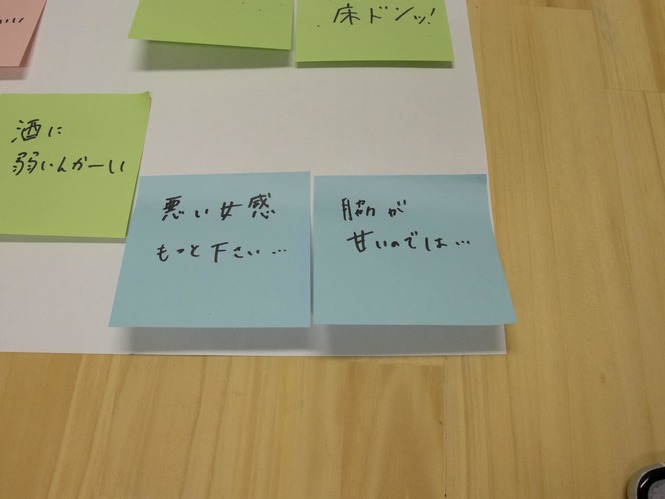 いい
床ドンッ!
酒に
弱いんかーい
悪い女感
もっと下さい…
脇が
甘いのでは…